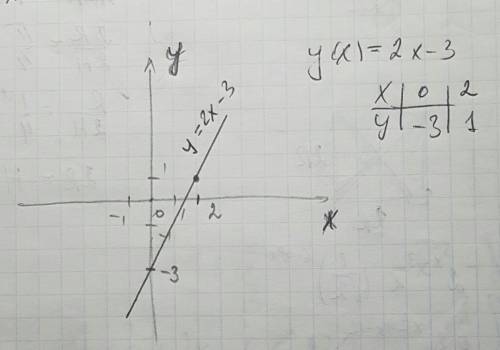 y(x) = 2x-3
x | 0 | 2
y | -3 | 1
y
y = 2x-3
1
-1 0 1 2
x
-1
-3